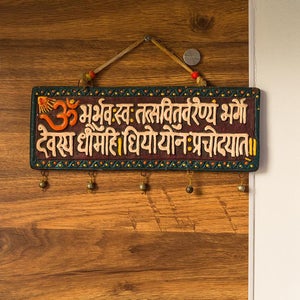 ॐ भूर्भुवःस्वः तत्सवितुर्वरेण्यं भर्गो
देवस्य धीमहि। धियोयोनःप्रचोदयात्॥